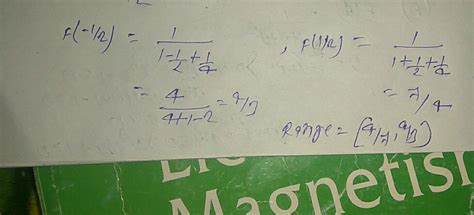 f(-1/2) = 1 / (1 - 1/2 + 1/4) , f(1/2) = 1 / (1 + 1/2 + 1/4)
= 4 / (4+1-2) = 4/3 = 7/4
Range = [4/7, 4/3)
Magnetis